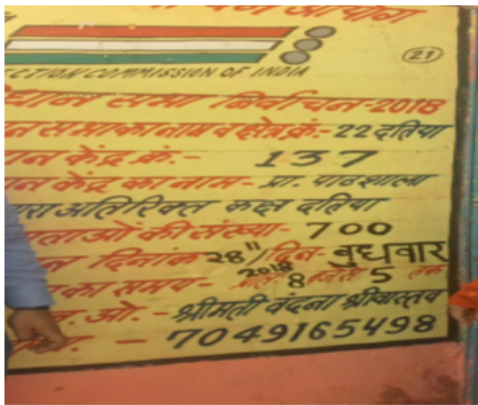 आयोग
CTION COMMISSION OF INDIA
21
धान सभा निर्वाचन-2018
नसभा का नाम व क्षेत्र क्रं:- 22 दतिया
ान केंद्र क्रं.- 137
ान केंद्र का नाम- प्रा. पाठशाला
अतिरिक्त कक्ष दतिया
ताओं की संख्या- 700
न दिनांक 28/11/2018 दिन- बुधवार
का समय- प्रातः 8 बजे से 5 तक
ओ.- श्रीमती वंदना श्रीवास्तव
- 7049165498